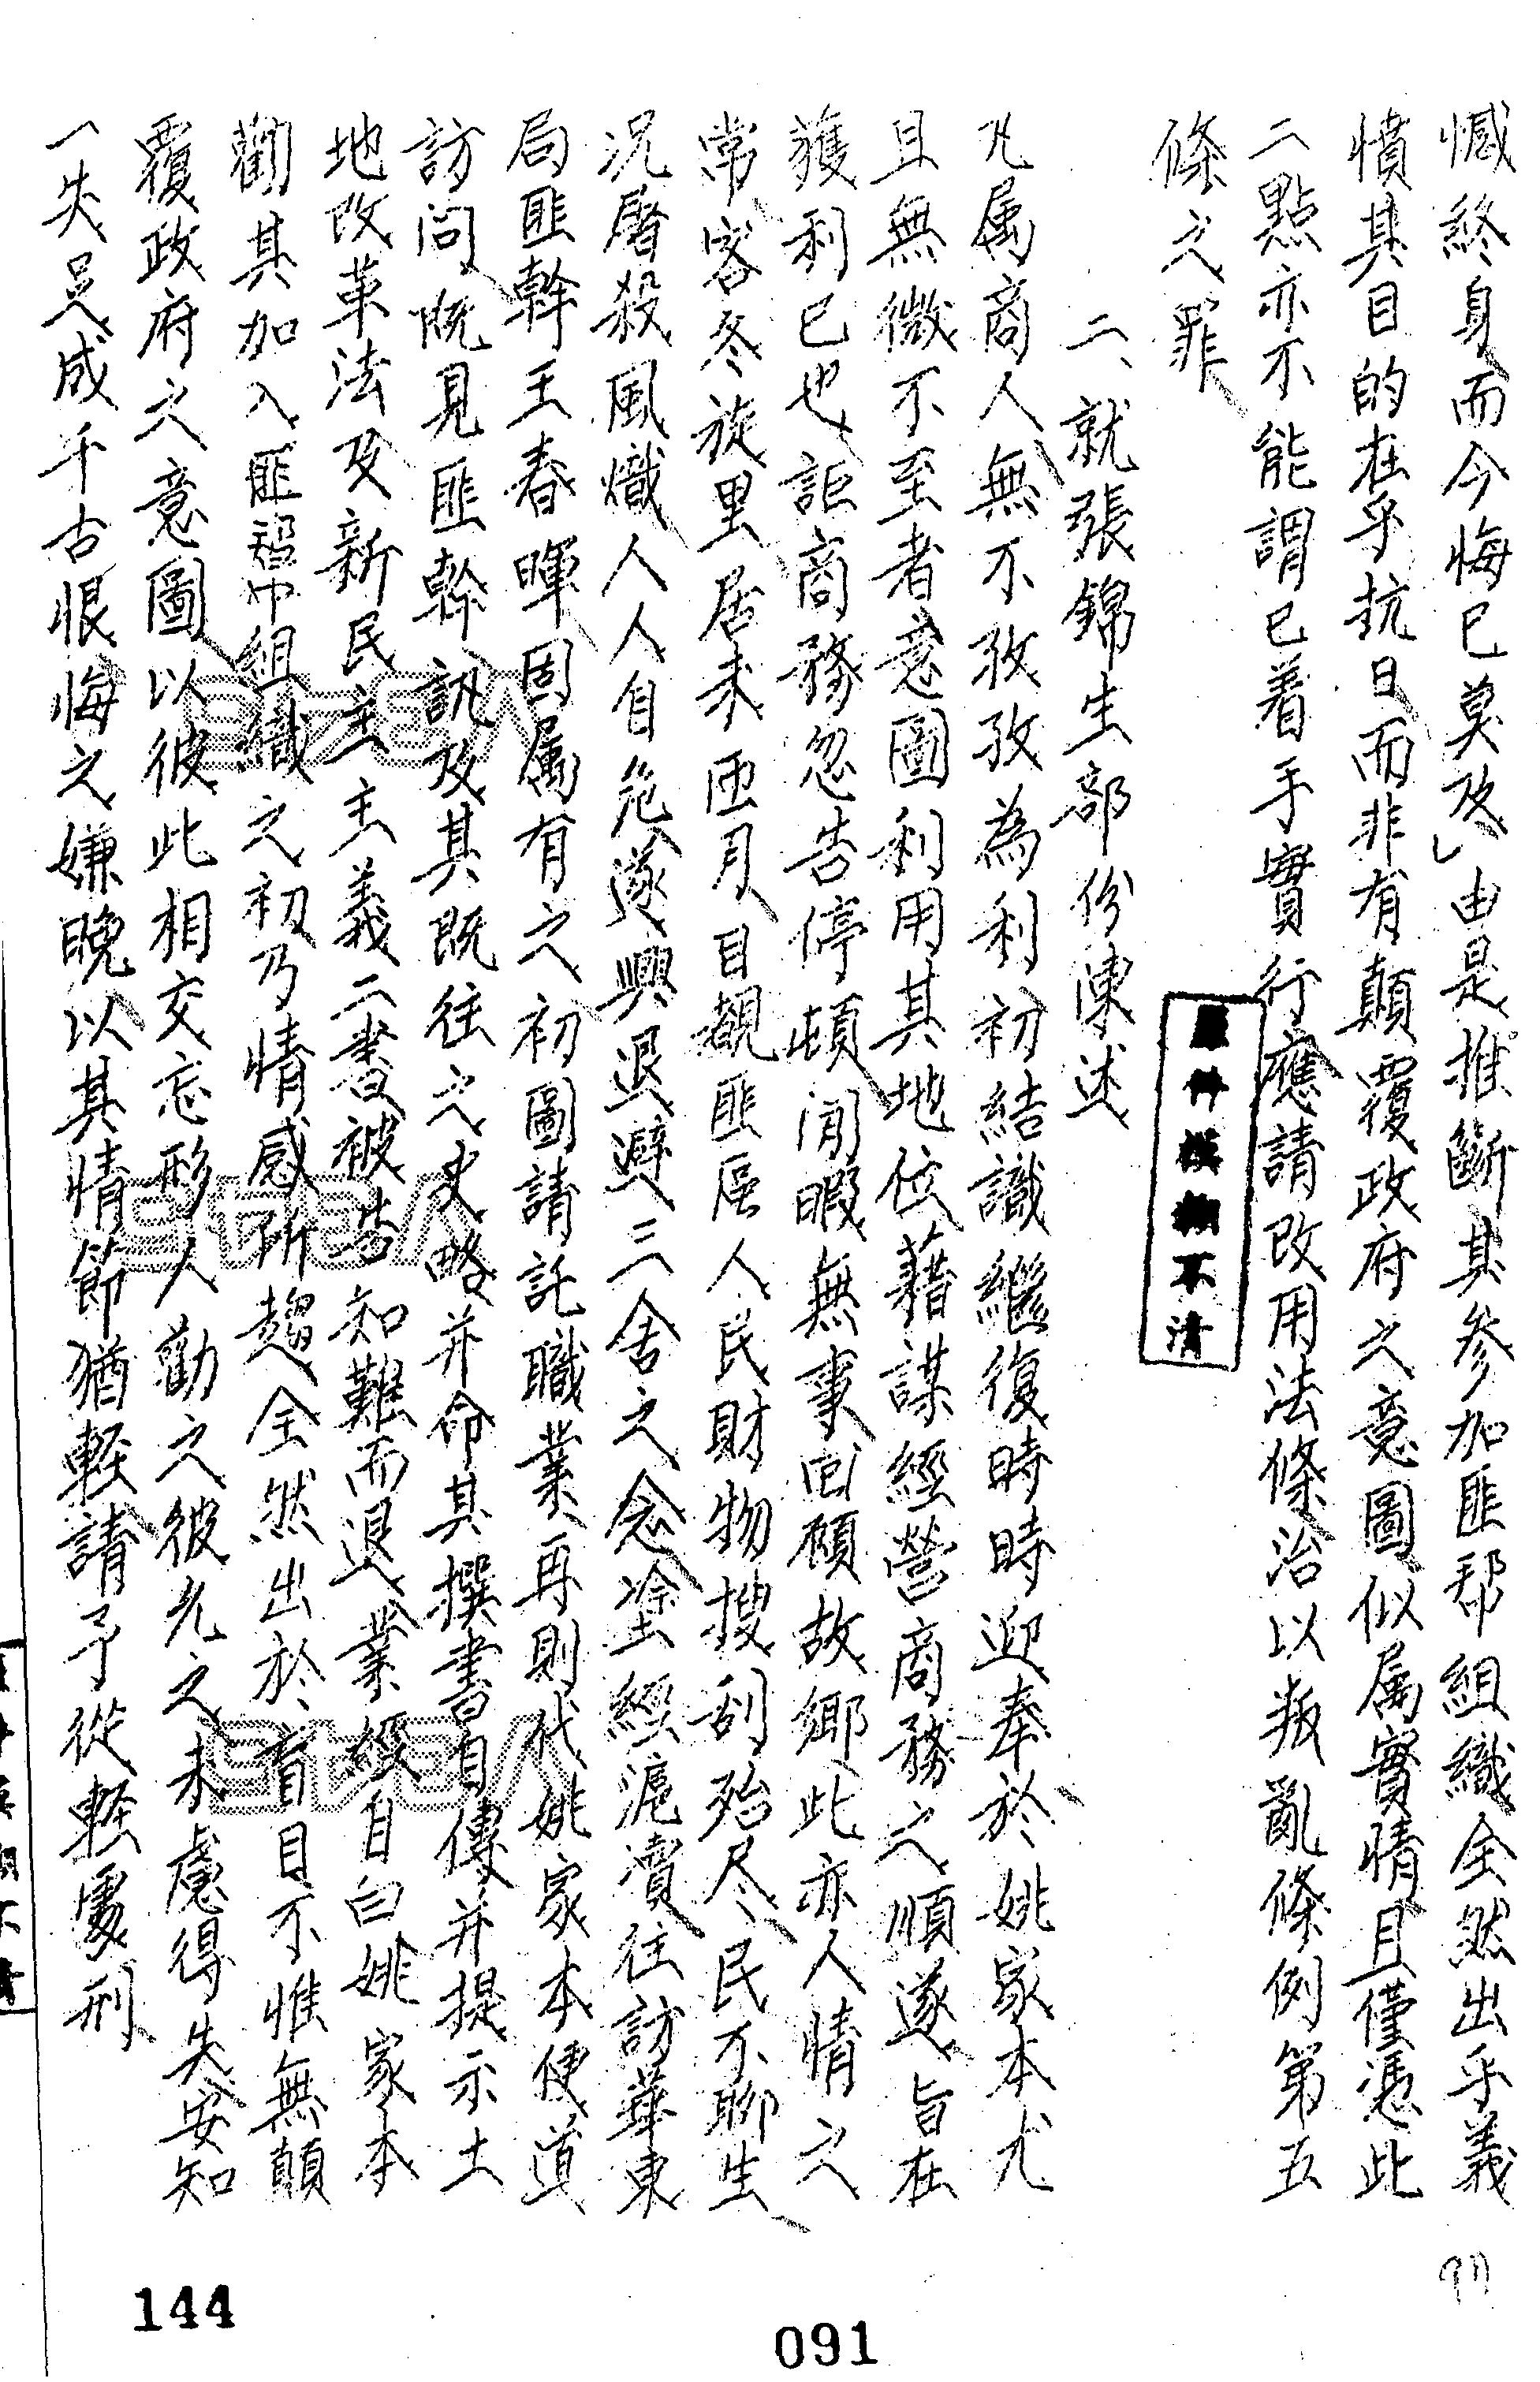 憾終身而今悔已莫及」由是推斷其參加匪帮組織全然出乎義
憤其目的在乎抗日而非有顛覆政府之意圖似属實情且僅憑此
二點亦不能謂已着手實行應請改用法條治以叛亂條例第五
條之罪
二、就張錦生部份陳述
凡属商人無不孜孜為利初結識繼復時時迎奉於姚家本尤
且無微不至者意圖利用其地位藉謀經營商務之順遂旨在
獲利已也詎商務忽告停頓閒暇無事回顧故鄉此亦人情之
常客冬旋里居未匝月目覩匪區人民財物搜刮殆尽民不聊生
況屠殺風熾人人自危遂興退避三舍之念塗經滬瀆往訪華東
局匪幹王春暉固属有之初圖請託職業再則代姚家本便道
訪問既見匪幹訊及其既往之史略并命其撰書自傳并提示土
地改革法及新民主主義二書被告知難而退業經自白姚家本
勸其加入匪帮組織之初乃情感所趨全然出於盲目不惟無顛
覆政府之意圖以彼此相交忘形人勸之彼允之未慮得失安知
一失足成千古恨悔之嫌晚以其情節猶輕請予從輕處刑
件模糊不清
144
091